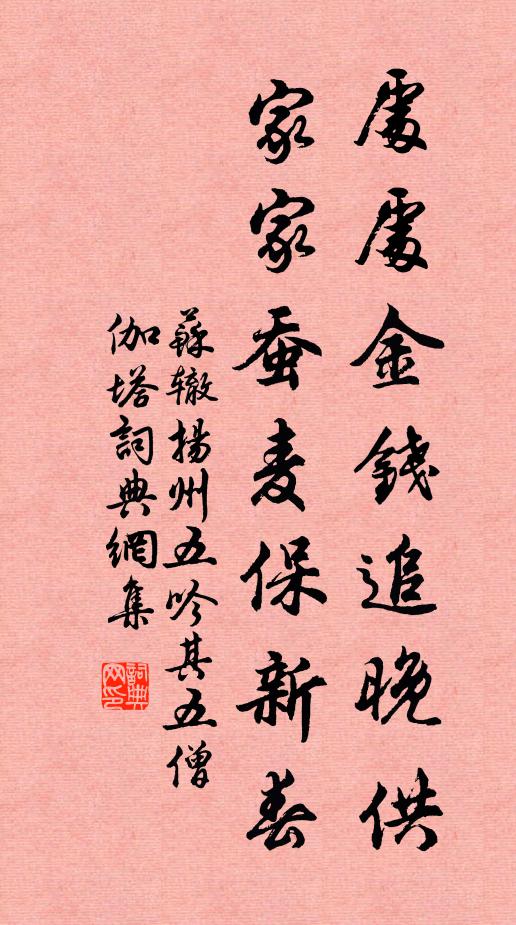 處處金錢追晚供
家家蚕麦保新春
蘇辙揚州五吟其五僧
伽塔詞典網集
詞典
网印